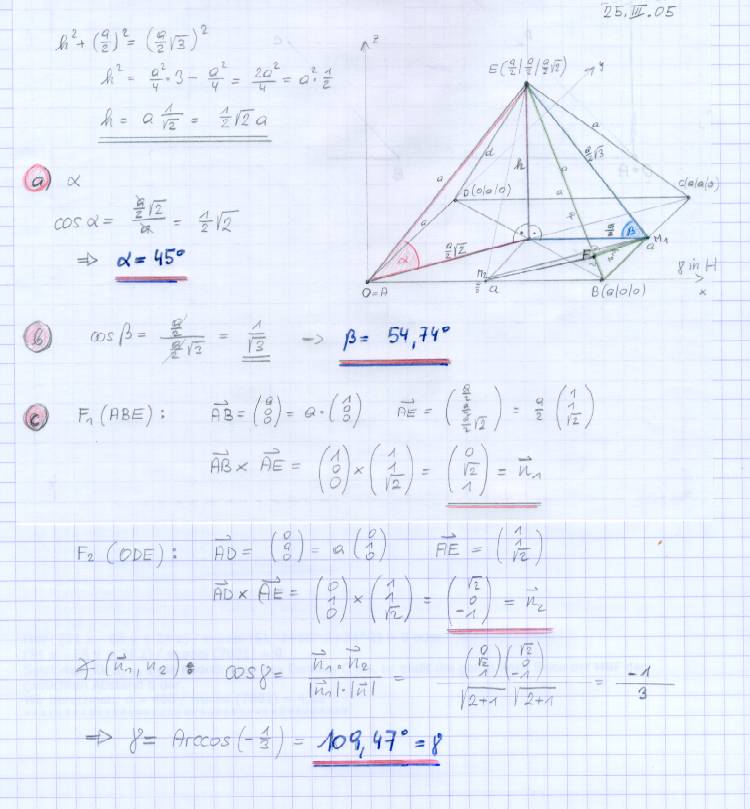 25.III.05
h² + (a/2)² = (a/2 √3)²
h² = a²/4 · 3 − a²/4 = 2a²/4 = a² · 1/2
h = a 1/√2 = 1/2 √2 a
z
E(a/2 | a/2 | a/2 √2)
y
a
d
h
a
a/2 √3
a
a
D(0|a|0)
a
C(a|a|0)
a
a/2
β
M₁
a/2 √2
α
F
a
O=A
a
B(a|0|0)
γ in H
x
a) α
cos α = a/2 √2 / a = 1/2 √2
⇒ α = 45°
b) cos β = a/2 / a/2 √3 = 1/√3 → β = 54,74°
c) F₁ (ABE): AB = (a 0 0) = a · (1 0 0) AE = (a/2 a/2 a/2 √2) = a/2 (1 1 √2)
AB × AE = (1 0 0) × (1 1 √2) = (0 √2 1) = n₁
F₂ (ODE): AD = (0 a 0) = a (0 1 0) AE = (1 1 √2)
AD × AE = (0 1 0) × (1 1 √2) = (√2 0 −1) = n₂
∡ (n₁, n₂): cos γ = n₁ · n₂ / |n₁| · |n| = (0 √2 1) (√2 0 −1) / √2+1 √2+1 = −1 / 3
⇒ γ = Arccos(−1/3) = 109,47° = γ